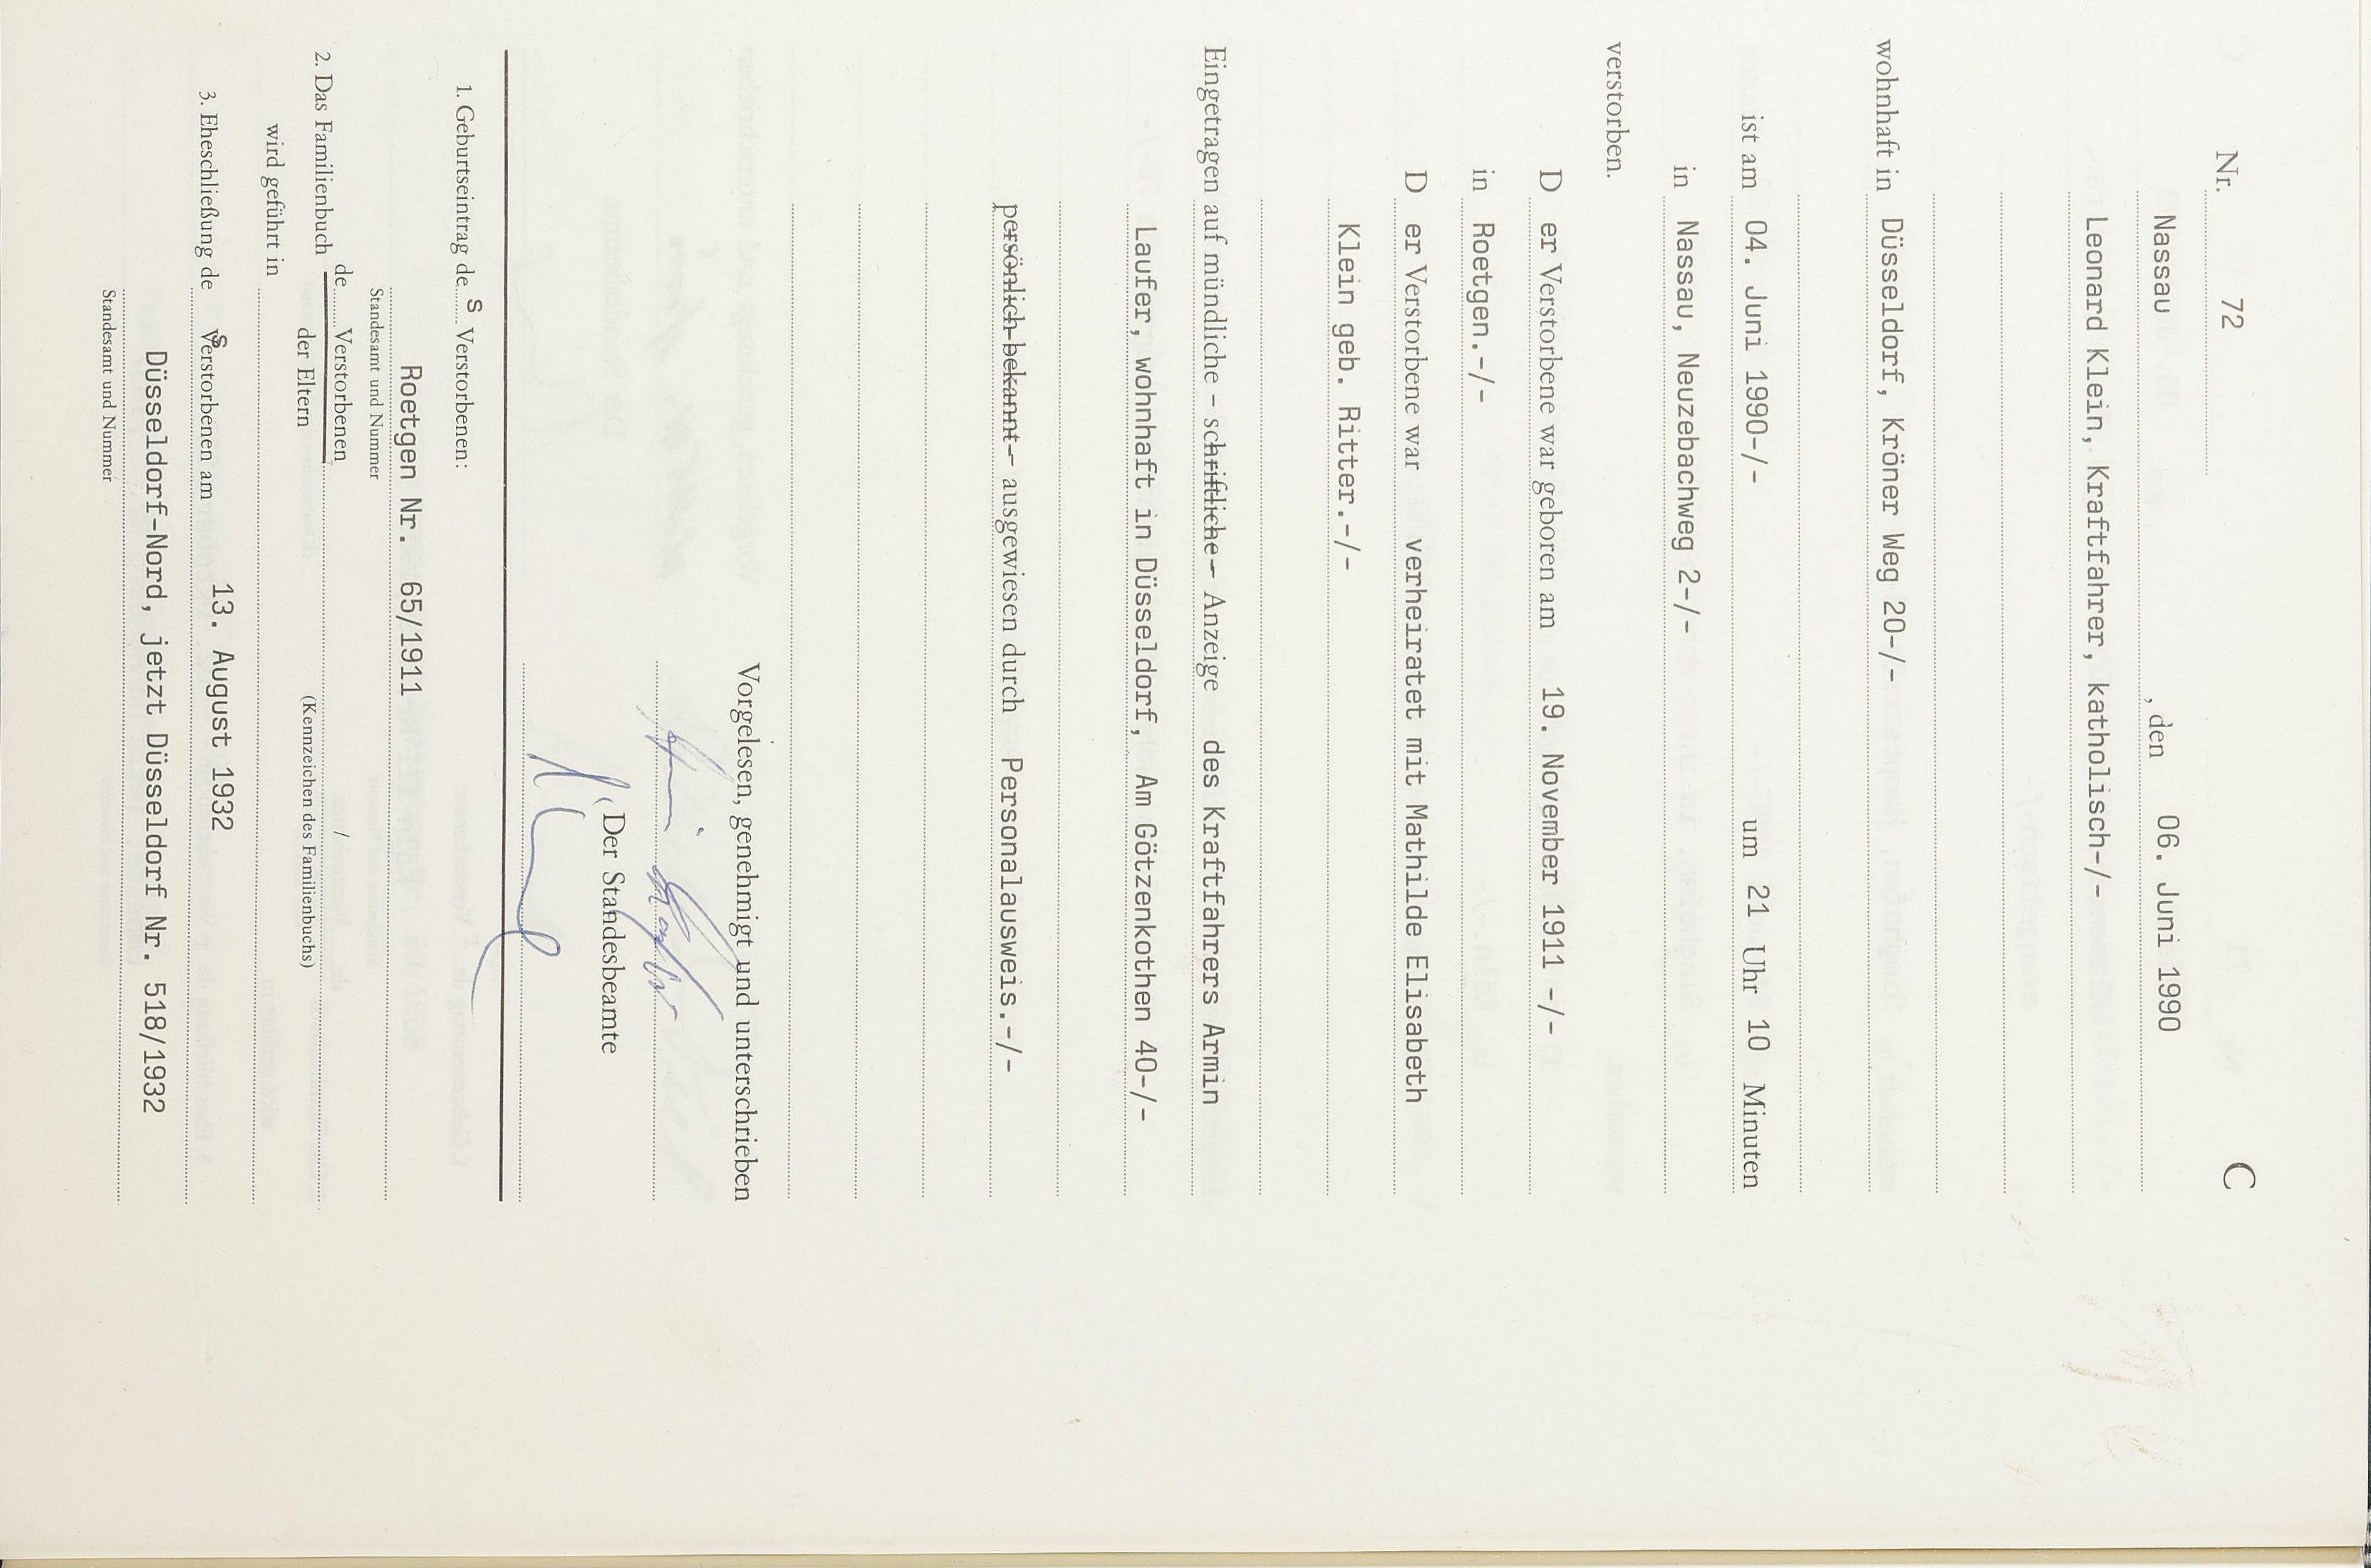 Nr. 72 C
Nassau , den 06. Juni 1990
Leonard Klein, Kraftfahrer, katholisch-/-
wohnhaft in Düsseldorf, Kröner Weg 20-/-
ist am 04. Juni 1990-/- um 21 Uhr 10 Minuten
in Nassau, Neuzebachweg 2-/-
verstorben.
D er Verstorbene war geboren am 19. November 1911 -/-
in Roetgen.-/-
D er Verstorbene war verheiratet mit Mathilde Elisabeth
Klein geb. Ritter.-/-
Eingetragen auf mündliche – schriftliche – Anzeige des Kraftfahrers Armin
Laufer, wohnhaft in Düsseldorf, Am Götzenkothen 40-/-
persönlich bekannt – ausgewiesen durch Personalausweis.-/-
Vorgelesen, genehmigt und unterschrieben
Der Standesbeamte
1. Geburtseintrag de s Verstorbenen:
Roetgen Nr. 65/1911
Standesamt und Nummer
2. Das Familienbuch de Verstorbenen /
der Eltern (Kennzeichen des Familienbuchs)
wird geführt in
3. Eheschließung de s Verstorbenen am 13. August 1932
Düsseldorf-Nord, jetzt Düsseldorf Nr. 518/1932
Standesamt und Nummer